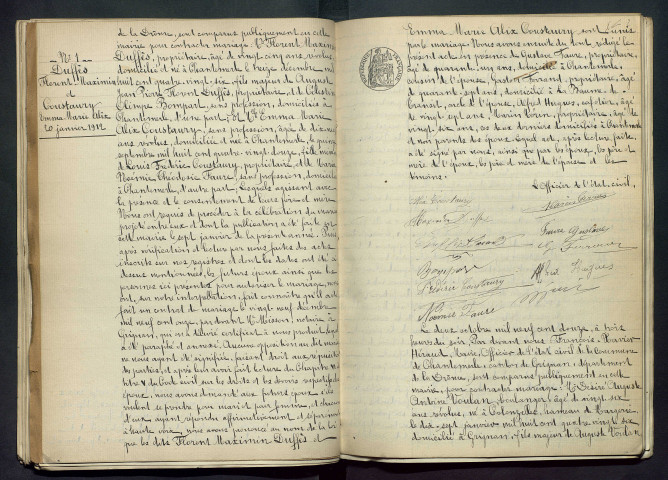 de la Drôme, sont comparus publiquement en cette
mairie pour contracter mariage. Mr Florent Maximin
Duffès, propriétaire, âgé de vingt cinq ans, révolus,
domicilié et né à Chantemerle le treize décembre mil
huit cent quatre vingt six, fils majeur de Auguste
Jean Pierre Florent Duffès, propriétaire, et de Célestine
Olympe Bompart, sans profession, domiciliés à
Chantemerle, d'une part; Et Melle Emma Marie
Alix Coustaury, sans profession, âgée de dix-neuf
ans révolus, domiciliée et née à Chantemerle, le quinze
septembre mil huit cent quatre-vingt-douze, fille mineure
de Louis Frédéric Coustaury, propriétaire, et de Marie
Noémie Théodosie Faure, sans profession, domiciliés
à Chantemerle, d'autre part. Lesquels agissant avec
la présence et le consentement de leurs père et mère
Nous ont requis de procéder à la célébration du mariage
projeté entre eux et dont la publication a été faite en
cette mairie le sept janvier de la présente année.
après vérification et lecture par nous faites des actes
inscrits sur nos registres et dont les dates ont été ci-
dessus mentionnées, les futurs époux ainsi que les
personnes ici présentes pour autoriser le mariage, nous
ont, sur notre interpellation, fait connaître qu'il a été
fait un contrat de mariage le vingt neuf décembre
mil neuf cent onze, par devant Me Misson, notaire à
Grignan, qui en a délivré certificat à nous produit,
et paraphé et annexé. Aucune opposition au dit mariage
ne nous ayant été signifiée, faisant droit aux réquisitions
des parties, et après leur avoir fait lecture du Chapitre VI
titre V du Code civil sur les droits et les devoirs respectifs
époux, nous avons demandé aux futurs époux s'ils
veulent se prendre pour mari et pour femme, et chacun
d'eux ayant répondu affirmativement et séparément
à haute voix, nous avons prononcé au nom de la loi
que les dits Florent Maximin Duffès et
N° 1
Duffès
Florent Maximin
et
Coustaury
Emma Marie Alix
20 janvier 1912
Emma Marie Alix Coustaury, sont unis
par le mariage. Nous avons ensuite du tout rédigé le
présent acte en présence de Gustave Faure, propriétaire,
âgé de quarante cinq ans, domicilié à Chantemerle,
cousin de l'épouse, Gaston Morand, propriétaire, âgé
de quarante sept ans, domicilié à La Baume de
Transit, ami de l'époux, Alfred Hugues, cafetier, âgé
de vingt sept ans, Marius Loren, propriétaire, âgé de
vingt six ans, ces deux derniers domiciliés à Chantemerle
et non parents des époux; lequel acte, après lecture faite,
a été signé par nous, ainsi que par les époux, les père et
mère de l'époux, les père et mère de l'épouse et les
témoins.
L'Officier de l'état civil,
Faure Gustave
Bompart
Alfred Hugues
Frédéric Coustaury
Noémie Faure
Le deux octobre mil neuf cent douze, à trois
heures du soir. Par devant nous François Xavier
Héraud, Maire, Officier de l'état civil de la Commune
de Chantemerle, canton de Grignan, département
de la Drôme, sont comparus publiquement en cette
mairie, pour contracter mariage: Mr Désiré Auguste
Antoine Voulan, boulanger, âgé de vingt six
ans révolus, né à Colonzelle, hameau de Margerie,
le dix-sept janvier mil huit cent quatre vingt six
domicilié à Grignan, fils majeur de Auguste Voulan